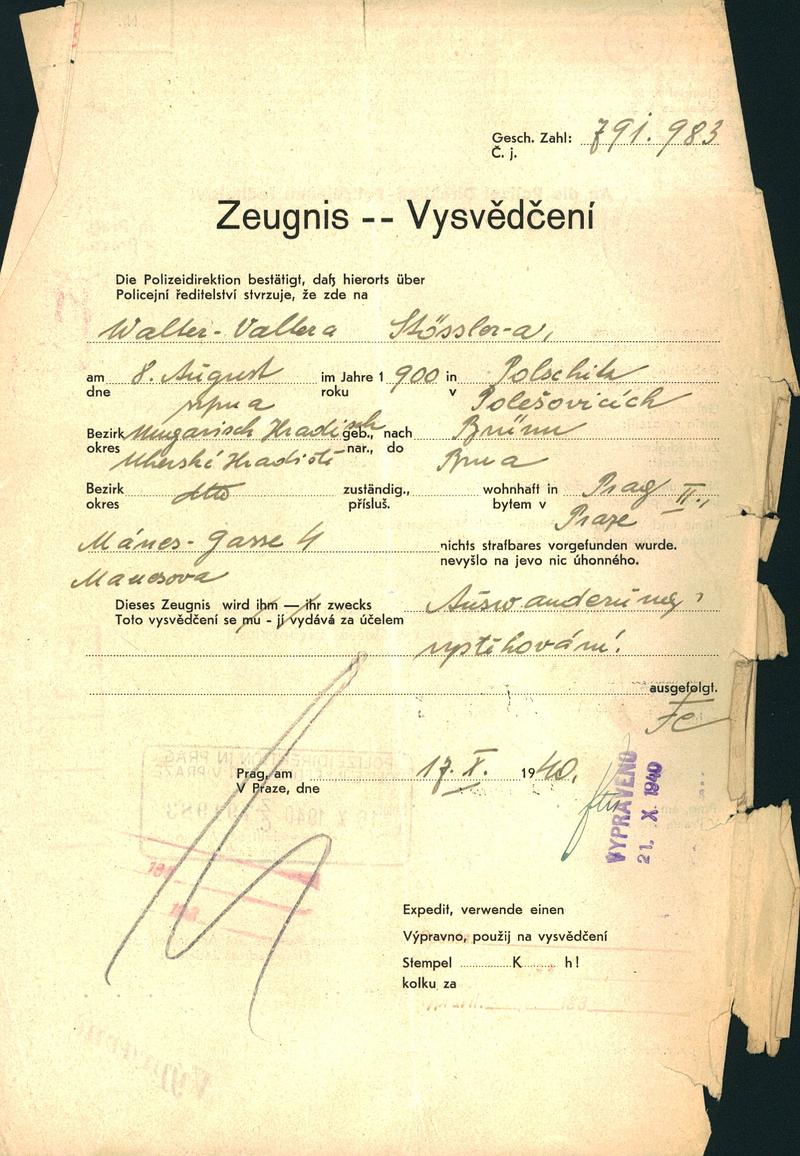 Gesch. Zahl: 791.983
Č. j.
Zeugnis -- Vysvědčení
Die Polizeidirektion bestätigt, daß hierorts über
Policejní ředitelství stvrzuje, že zde na
Walter-Valtera Stössler-a,
am 8. August im Jahre 1900 in Polschitz
dne srpna roku v Polešovicích
Bezirk Ungarisch Hradisch geb., nach Brünn
okres Uherské Hradiště nar., do Brna
Bezirk dtto zuständig., wohnhaft in Prag II.,
okres přísluš. bytem v Praze
Mánes-Gasse 4 nichts strafbares vorgefunden wurde.
Manesova nevyšlo na jevo nic úhonného.
Dieses Zeugnis wird ihm — ihr zwecks Auswanderung
Toto vysvědčení se mu - jí vydává za účelem
vystěhování.
ausgefolgt.
Prag, am 17. X. 1940.
V Praze, dne
VYPRAVENO
21. X. 1940
Expedit, verwende einen
Výpravno, použij na vysvědčení
Stempel K h!
kolku za